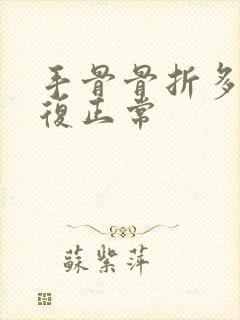 手骨骨折多
復正常
蘇紫萍